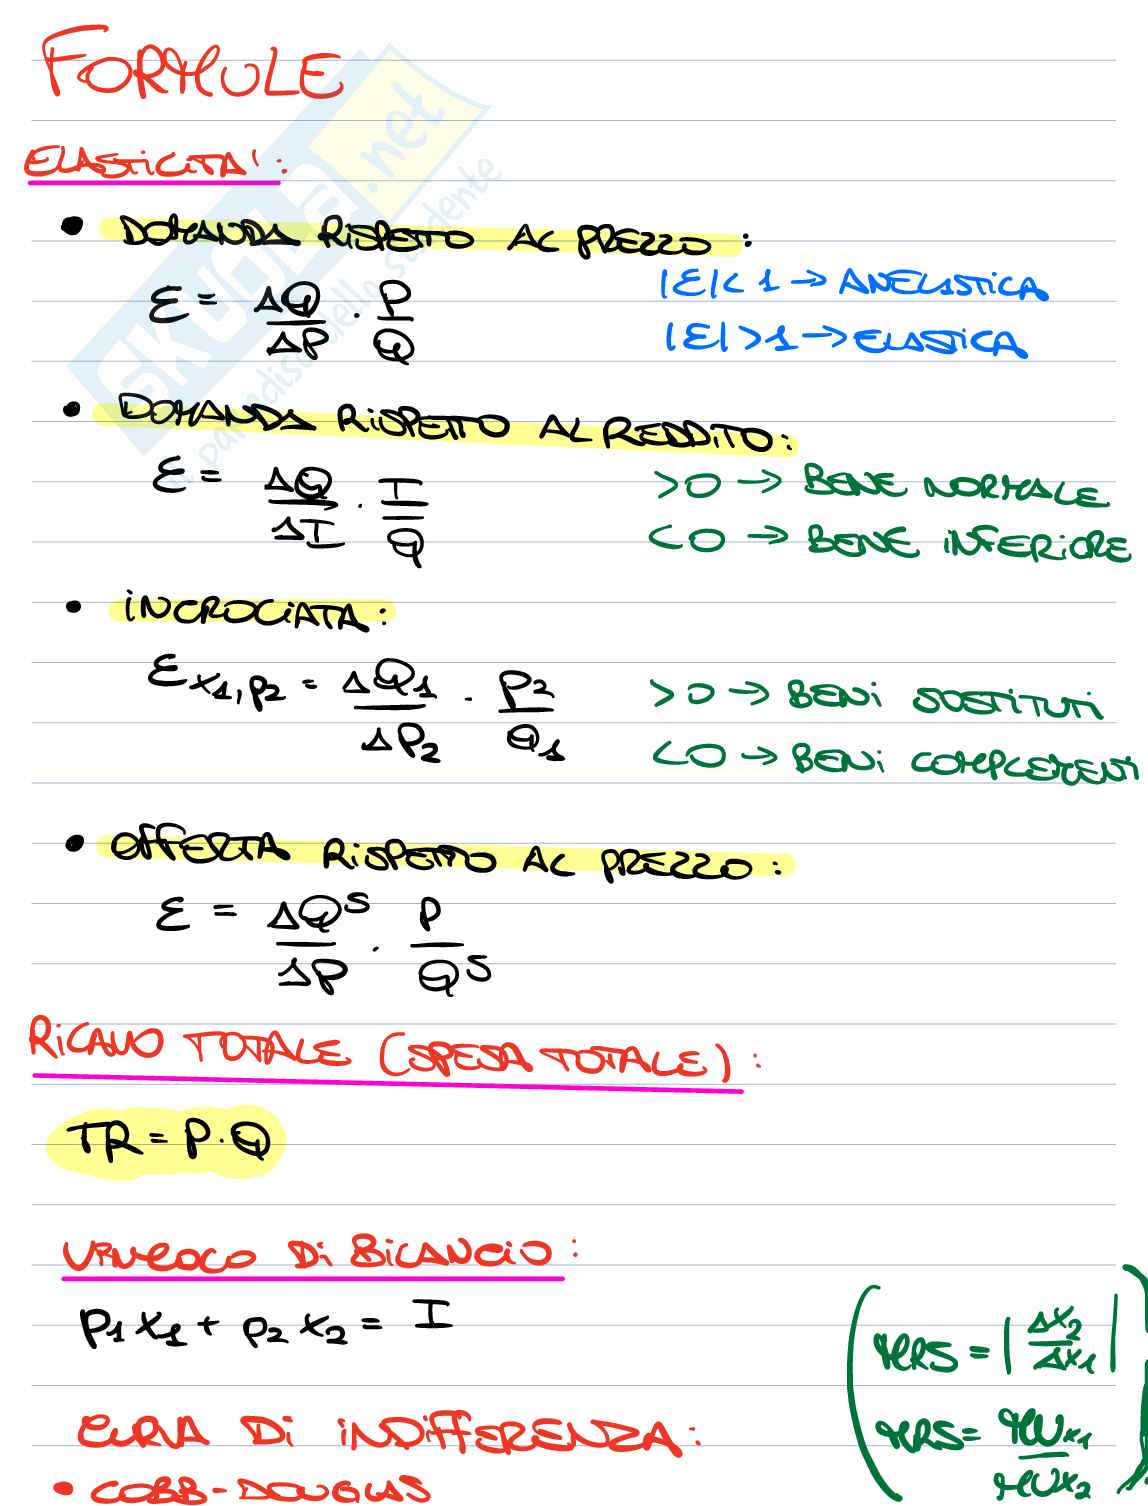 FORMULE
ELASTICITA':
• DOMANDA RISPETTO AL PREZZO:
ε = ΔQ/ΔP · P/Q
|ε| < 1 → ANELASTICA
|ε| > 1 → ELASTICA
• DOMANDA RISPETTO AL REDDITO:
ε = ΔQ/ΔI · I/Q
>0 → BENE NORMALE
<0 → BENE INFERIORE
• INCROCIATA:
εx1,p2 = ΔQ1/ΔP2 · P2/Q1
>0 → BENI SOSTITUTI
<0 → BENI COMPLEMENTI
• OFFERTA RISPETTO AL PREZZO:
ε = ΔQ^S/ΔP · P/Q^S
RICAVO TOTALE (SPESA TOTALE):
TR = P·Q
VINCOLO DI BILANCIO:
P1X1 + P2X2 = I
(MRS = |ΔX2/ΔX1|
MRS = MUx1/MUx2)
CURVA DI INDIFFERENZA:
• COBB-DOUGLAS
skuola.net
il paradiso dello studente